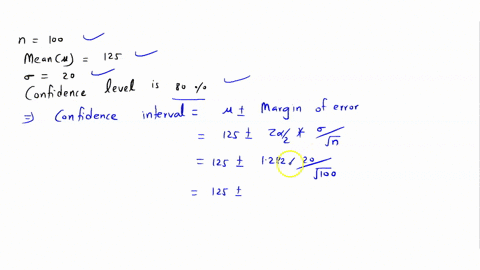 n = 100
Mean (μ) = 125
σ = 20
Confidence level is 80 %
⇒ Confidence interval = μ ± Margin of error
= 125 ± Zα/2 * σ/√n
= 125 ± 20/√100
= 125 ±